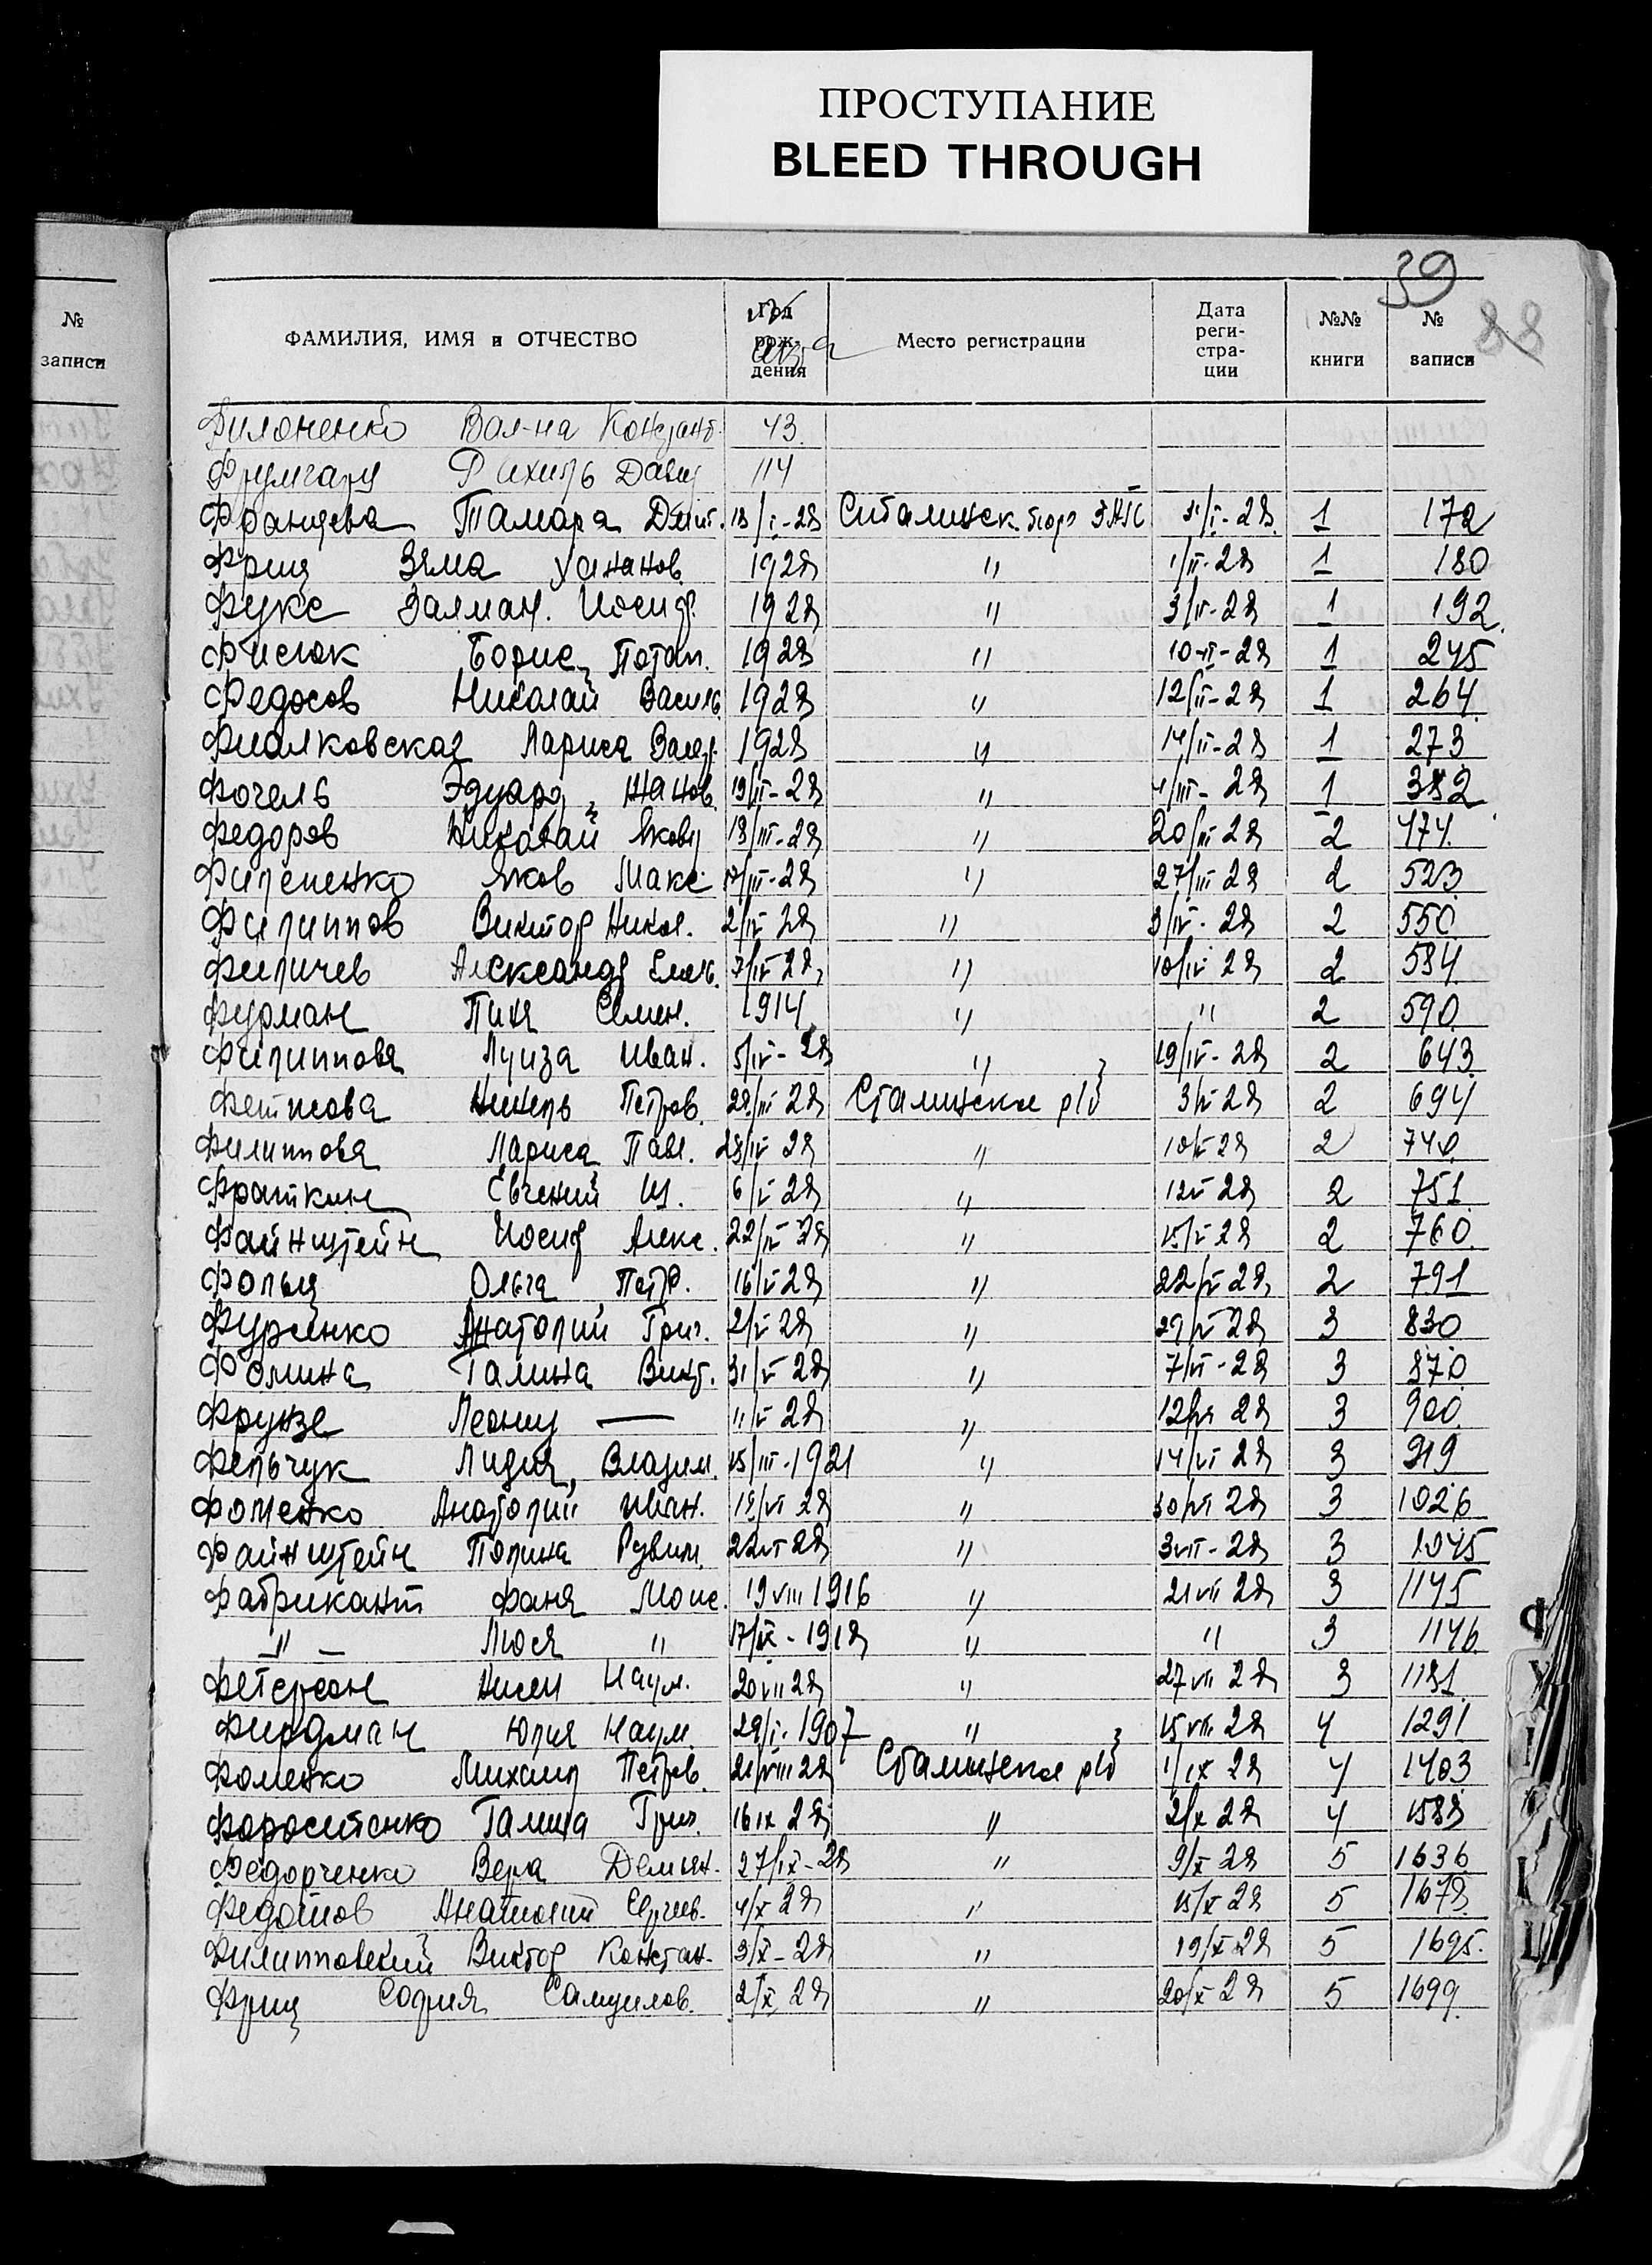 ПРОСТУПАНИЕ
BLEED THROUGH
39
88
№ записи
ФАМИЛИЯ, ИМЯ и ОТЧЕСТВО Год рождения Место регистрации Дата регистрации №№ книги № записи
Филоненко Вал-на Констант. 43
Рахиль Давид 114
Францева Тамара Дмит. 13/I-28 /I-28 1 172
Фриц Зяма 1928 " 1/II-28 1 180
Фукс Залман. Иосиф. 1928 " 3/II-28 1 192
Фисюк Борис Потап. 1928 " 10-II-28 1 245
Федосов Николай Василь. 1928 " 12/II-28 1 264
Фиалковская Лариса 1928 " 14/II-28 1 273
Фогель Эдуард Жанов. 19/II-28 " /III-28 1 382
Федоров Николай Яковл 18/III-28 " 20/III 28 2 474
Яков Макс. /III-28 " 27/III 28 2 523
Филиппов Виктор Никол. 2/IV 28 " 3/IV-28 2 550
Филичев Александр 7/IV 28 " 10/IV 28 2 584
Фурман Пиня Семен. 1914 " " 2 590
Филиппова Луиза Иван. 5/IV-28 " 19/IV-28 2 643
Нинель Петров. 28/III 28 Сталинское р/б 3/V 28 2 694
Филиппова Лариса Павл. 28/IV 28 " 10/V 28 2 740
Фраткин Евгений 6/V 28 " 12V 28 2 751
Файнштейн Иосиф Алекс. 22/IV 28 " 15/V 28 2 760
Фольц Ольга Петр. 16/V 28 " 22/V 28 2 791
Фуренко Анатолий Григ. 2/V 28 " 29/V 28 3 830
Фомина Галина Викт. 31/V 28 " 7/VI-28 3 870
Фрунзе Леонид — 11/V 28 " 12/VI 28 3 900
Фельчук Лидия, Владим. 15/III-1921 " 14/VI 28 3 919
Фоменко Анатолий Иван. 18/VI 28 " 30/VI 28 3 1026
Файнштейн Полина Рувим. 22VI 28 " 3VII-28 3 1045
Фабрикант Фаня Моис. 19 VIII 1916 " 21 VII 28 3 1145
" Люся " 17/IX-1918 " " 3 1146
Наум. 20 VII 28 " 27 VII 28 3 1181
Фирдман Юлия Наум. 29/I-1907 " 15 VIII 28 4 1291
Фоменко Михаил Петров. 21/VIII 28 Сталинское р/б 1/IX 28 4 1403
Галина Григ. 16 IX 28 " 2/X 28 4 1588
Федорченко Вера Демьян. 27/IX-28 " 9/X 28 5 1636
Федотов Анатолий Сергеев. 4/X 28 " 15/X 28 5 1678
Филипповский Виктор Констан. 3/X-28 " 19/X 28 5 1695.
Фриц София Самуилов. 2/X 28 " 20/X 28 5 1699